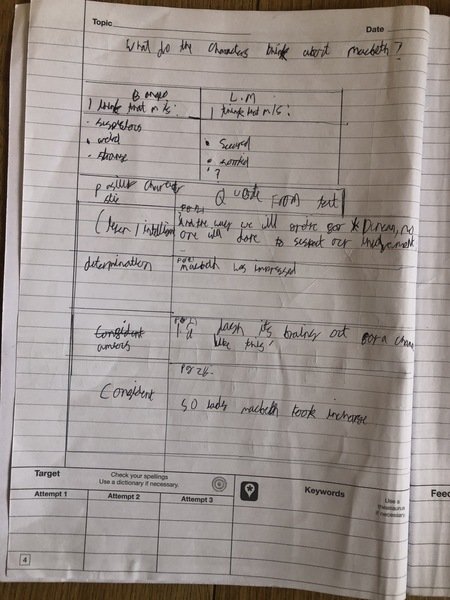 Topic Date
What do the characters think about macbeth?
Banquo L.M
I think that m is: I think that m is:
· suspisious
· weird · scared
· strange · worried
· ?
Positive character Quote From text
stic
Clever / intelligent And the way we ill grieve for Duncan, no
one will dare to suspect our involvement
determination macbeth was impressed
Consident I'd dash its brains out for a
like this'
Consident
SO lady macbeth took incharge
Target Check your spellings
Use a dictionary if necessary.
Attempt 1 Attempt 2 Attempt 3 Keywords Use a
thesaurus
if necessary
Feed
4